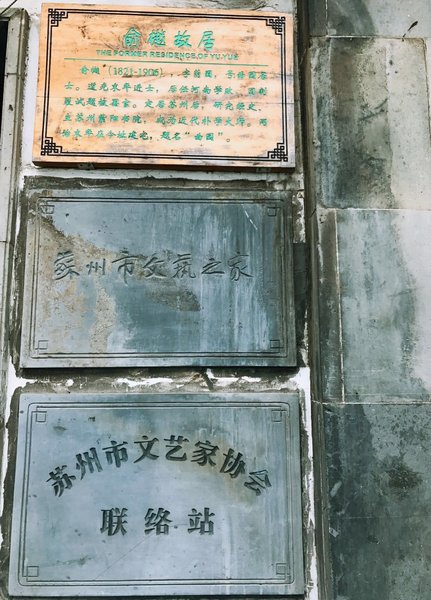 俞樾故居
THE FORMER RESIDENCE OF YU YUE
俞樾（1821-1906），字荫甫，号曲园居
士。道光末年进士，原任河南学政，因割
裂试题被罢官。定居苏州后，研究学史，
主苏州紫阳书院，成为近代朴学大师。同
治末年在今址建宅，题名“曲园”。
蘇州市文藝之家
苏州市文艺家协会
联络站